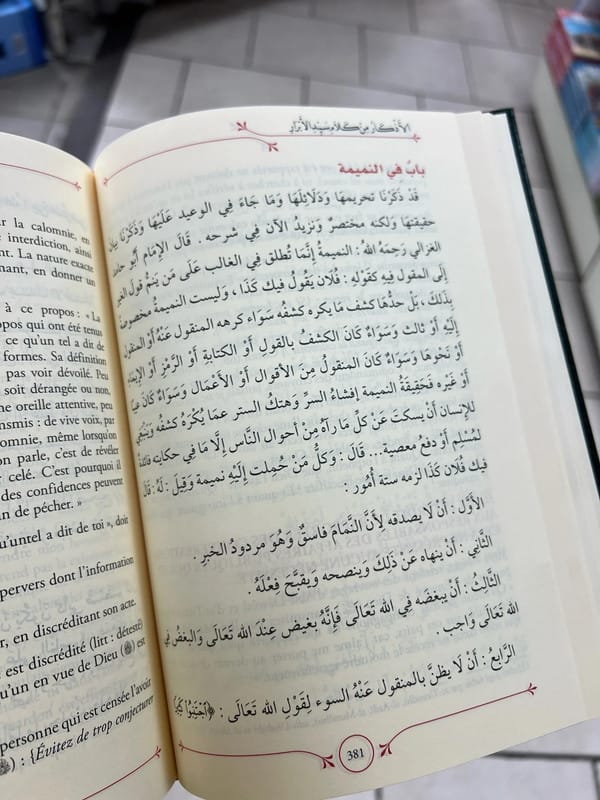 الأَذْكَارُ مِنْ كَلَامِ سَيِّدِ الأَبْرَارِ
بابٌ في النميمة
قَدْ ذَكَرْنَا تحريمهَا وَدَلَائِلَهَا وَمَا جَاءَ فِي الوعيد عَلَيْهَا وَذَكَرْنَا بيان
حقيقتهَا وَلكنه مختصرٌ وَنزيدُ الآن فِي شرحه . قَالَ الإِمَام أَبُو حامد
الغزالي رَحِمَهُ اللهُ : النميمةُ إِنَّمَا تُطلق فِي الغالب عَلَى مَن يَنمُّ قولَ الغير
إِلَى المقول فِيهِ كقوله : فُلَان يَقُول فِيك كَذَا ، وَليست النميمةُ مخصوصة
بِذلكَ ، بل حدُّهَا كشف مَا يكره كشفُه سَوَاء كرهه المنقول عَنْهُ أَوْ المنقول
إِلَيْهِ أَوْ ثالث وَسَوَاءٌ كَانَ الكشفُ بالقولِ أَوْ الكتابةِ أَوْ الرَّمْزِ أَوْ الإِيمَاء
أَوْ نَحْوِهَا وَسَوَاءٌ كَانَ المنقولُ مِنَ الأقوال أَوْ الأَعْمَالِ وَسَوَاءٌ كَانَ عيبًا
أَوْ غَيْرَه فَحَقِيقَةُ النميمة إفشاءُ السرِّ وَهتكُ الستر عمَا يُكْرَهُ كشفُه وَيَنْبَغِي
للإِنسان أَنْ يسكتَ عَنْ كلِّ مَا رآهُ مِنْ أحوال النَّاس إِلَّا مَا فِي حكايته فائدةٌ
لِمُسْلِمٍ أَوْ دفعُ معصية... قَالَ : وَكلُّ مَنْ حُمِلت إِلَيْهِ نميمة وَقِيلَ : لَهُ : قَالَ
فيك فُلَان كَذَا لزمه ستة أُمُور :
الأَوَّلُ : أَنْ لَا يصدقه لِأَنَّ النَّمَّامَ فاسقٌ وَهُوَ مردودُ الخبرِ .
الثَّانِي : أَنْ ينهاه عَنْ ذَلِكَ وَينصحه وَيقبِّحَ فِعْلَهُ .
الثَّالِثُ : أَنْ يبغضَه فِي الله تَعَالَى فَإِنَّهُ بغيض عِنْدَ الله تَعَالَى وَالبغض فِي
الله تَعَالَى وَاجب .
الرَّابِعُ : أَنْ لَا يظنَّ بالمنقول عَنْهُ السوء لِقَوْلِ الله تَعَالَى : ﴿اجْتَنِبُوا كَثِيرًا
381
r la calomnie, en
interdiction, ainsi
nt. La nature exacte
nant, en donner un
à ce propos : « La
opos qui ont été tenus
ce qu'un tel a dit de
formes. Sa définition
pas voir dévoilé. Peu
soit dérangée ou non,
ne oreille attentive, peu
nsmis : de vive voix, par
omnie, même lorsqu'on
n parle, c'est de révéler
r celé. C'est pourquoi il
des confidences peuvent
n de pécher. »
u'untel a dit de toi », doit
pervers dont l'information
r, en discréditant son acte.
est discrédité (litt : détesté)
u'un en vue de Dieu (ﷻ) est
personne qui est censée l'avoir
) : {Évitez de trop conjecturer